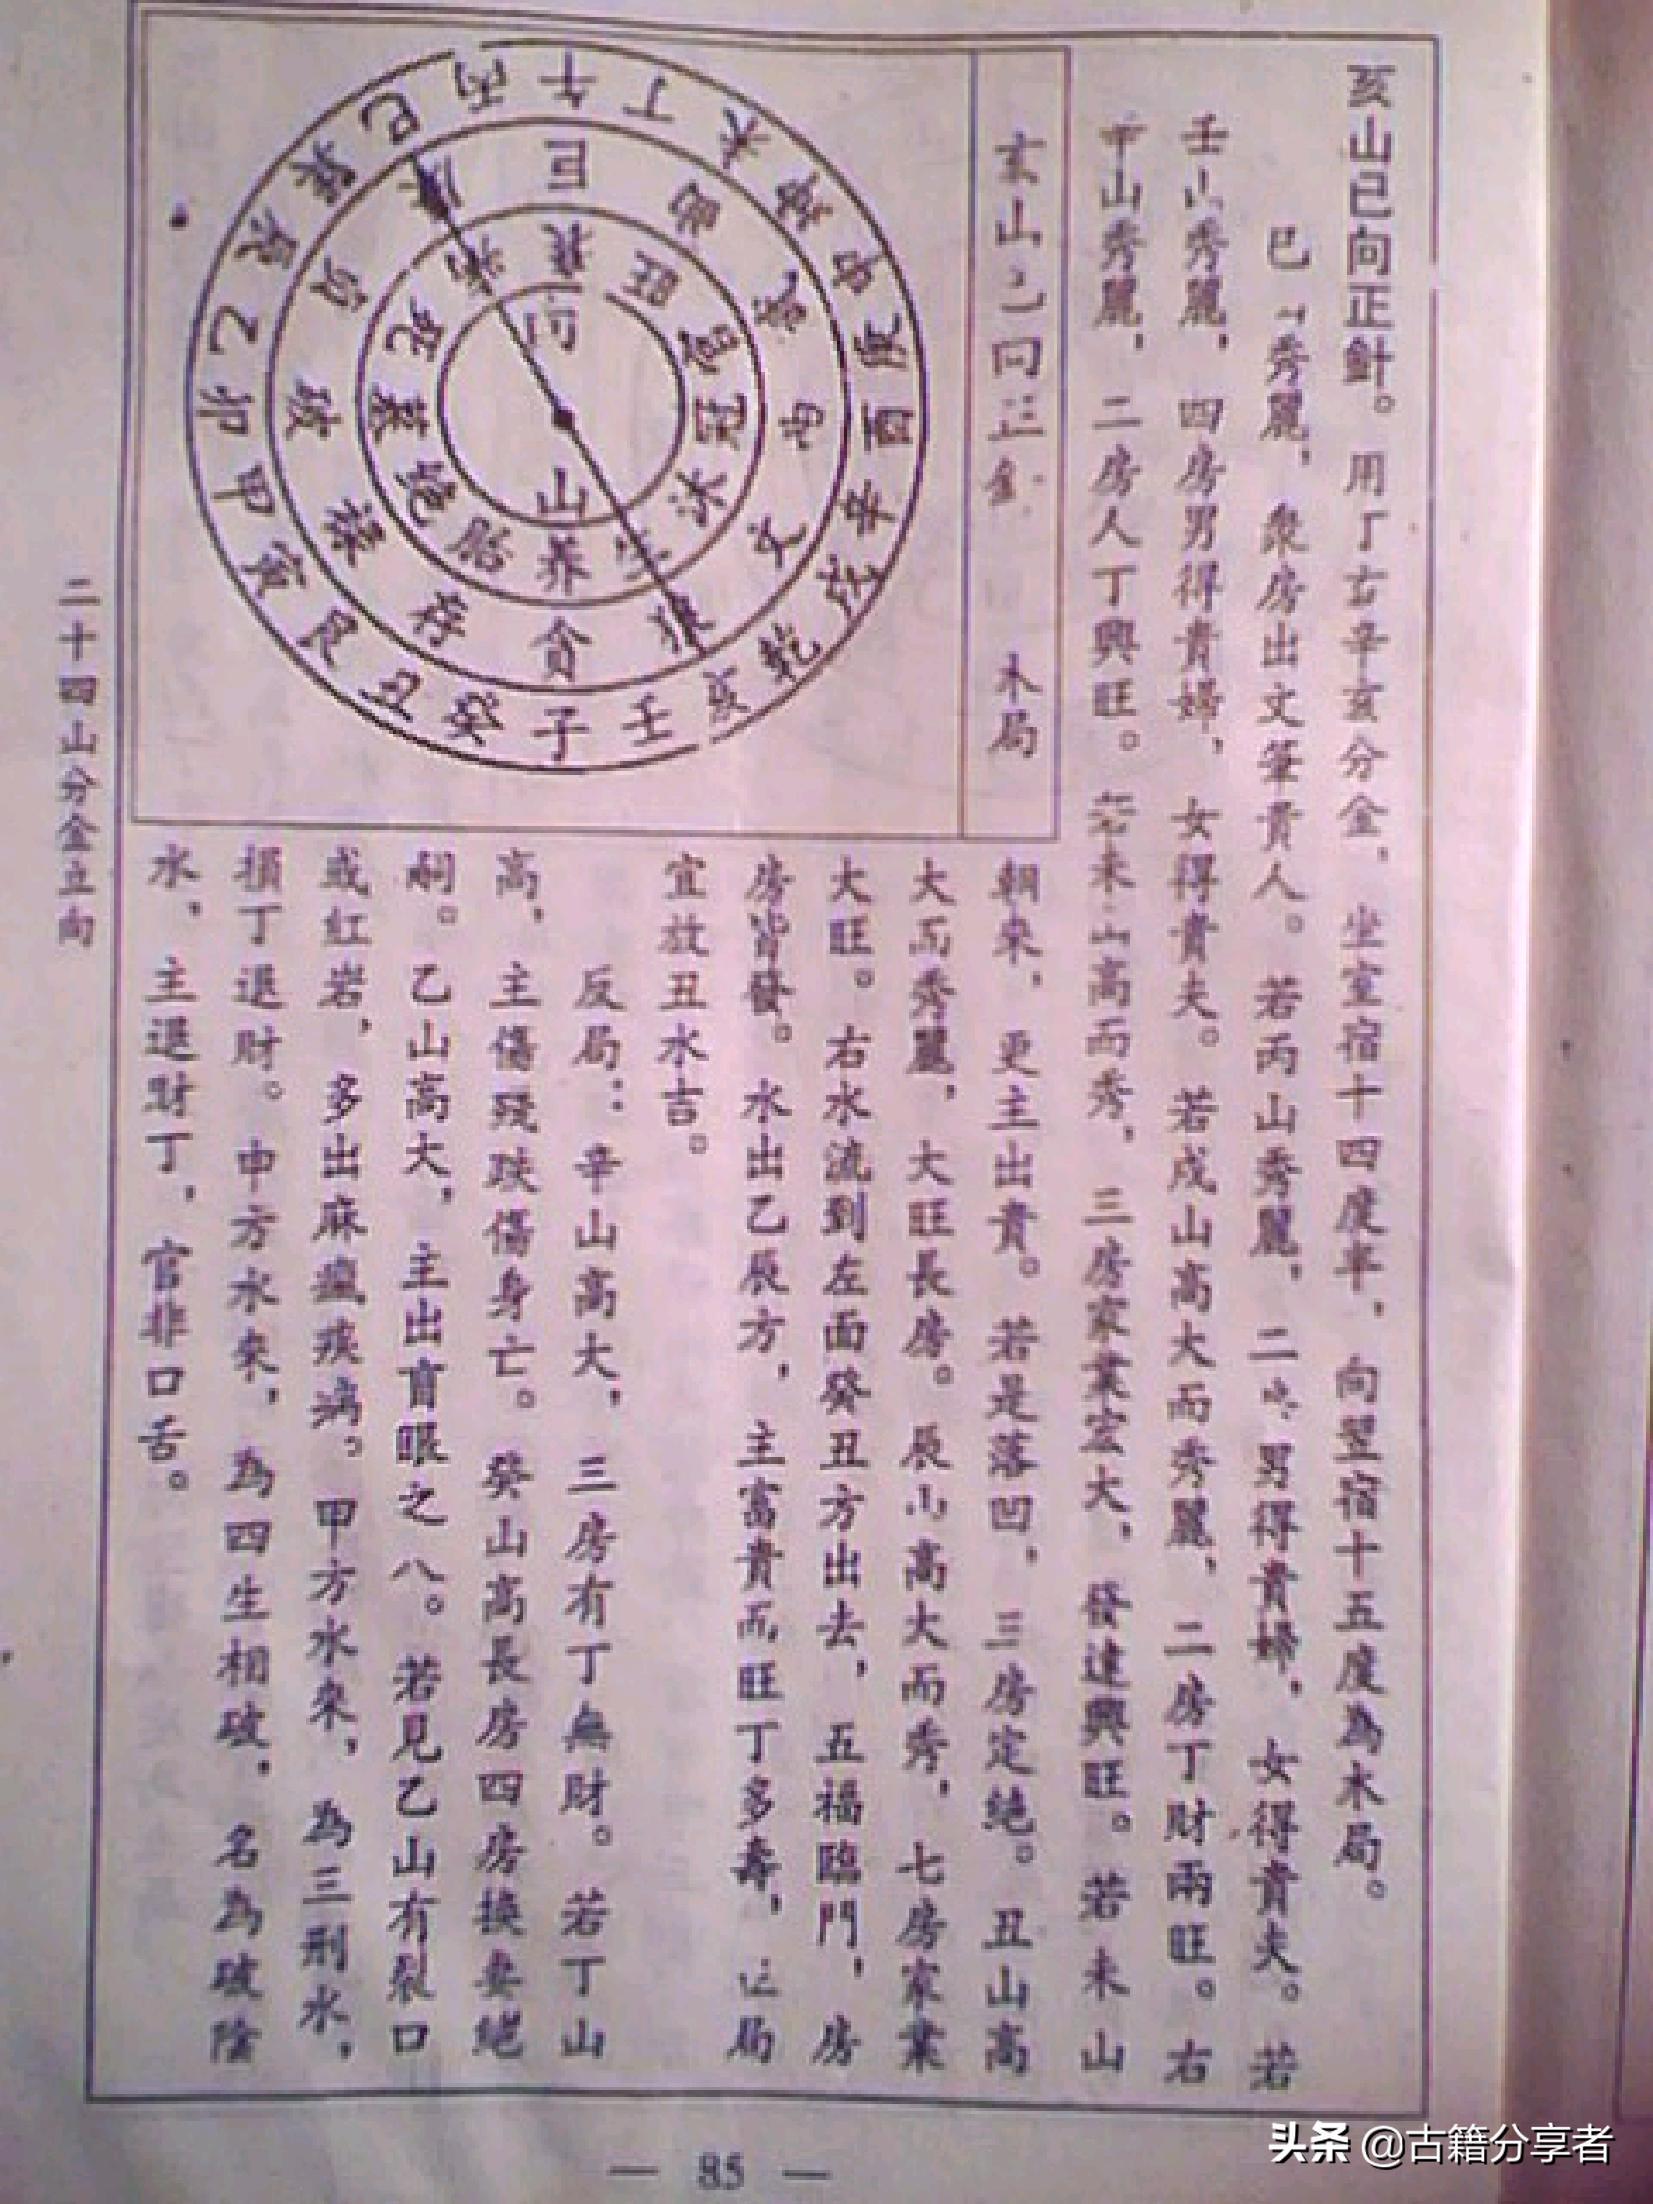 亥山巳向正針。用丁亥辛亥分金，坐室宿十四度半，向翌宿十五度為木局。
巳山秀麗，衆房出文筆貴人。若丙山秀麗，二房男得貴婦，女得貴夫。若
壬山秀麗，四房男得貴婦，女得貴夫。若戌山高大而秀麗，二房丁財兩旺。右
申山秀麗，二房人丁興旺。若未山高而秀，三房家業宏大，發達興旺。若未山
亥山巳向正針 木局
朝來，更主出貴。若是落凹，三房定絕。丑山高
大而秀麗，大旺長房。辰山高大而秀，七房家業
大旺。右水流到左面癸丑方出去，五福臨門，房
房皆發。水出乙辰方，主富貴而旺丁多壽，局
宜放丑水吉。
反局：辛山高大，三房有丁無財。若丁山
高，主傷殘跌傷身亡。癸山高長房四房換妻絕
嗣。乙山高大，主出盲眼之人。若見乙山有裂口
或紅岩，多出麻瘋痰病。甲方水來，為三刑水，
損丁退財。申方水來，為四生相破，名為破陰
水，主退財丁，官非口舌。
丙午丁未坤申庚酉辛戌乾亥壬子癸丑艮寅甲卯乙辰巽巳
廉 文 貪 存 破
旺 官 冠 沐 生 养 胎 绝 墓 死
向
山
二十四山分金立向
— 85 —
头条 @古籍分享者